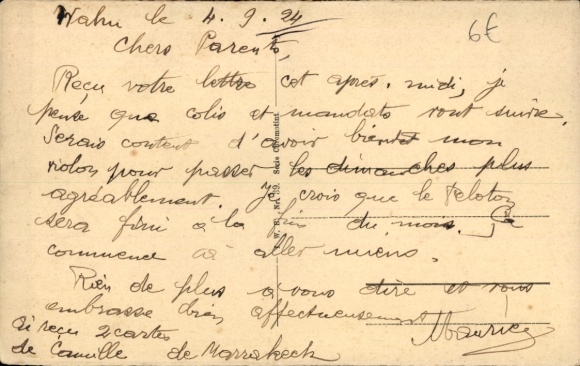 le 4.9.24
6€
Chers Parents,
Reçu votre lettre cet après-midi, je
pense que colis et mandats vont suivre.
Serais content d'avoir bientot mon
violon pour passer les dimanches plus
agréablement. Je crois que le peloton
sera fini à la fin du mois. Ça
commence à aller mieux.
Rien de plus à vous dire et vous
embrasse bien affectueusement
Maurice
Ai reçu 2 cartes
de Camille de Marrakech
Serie Chromotint